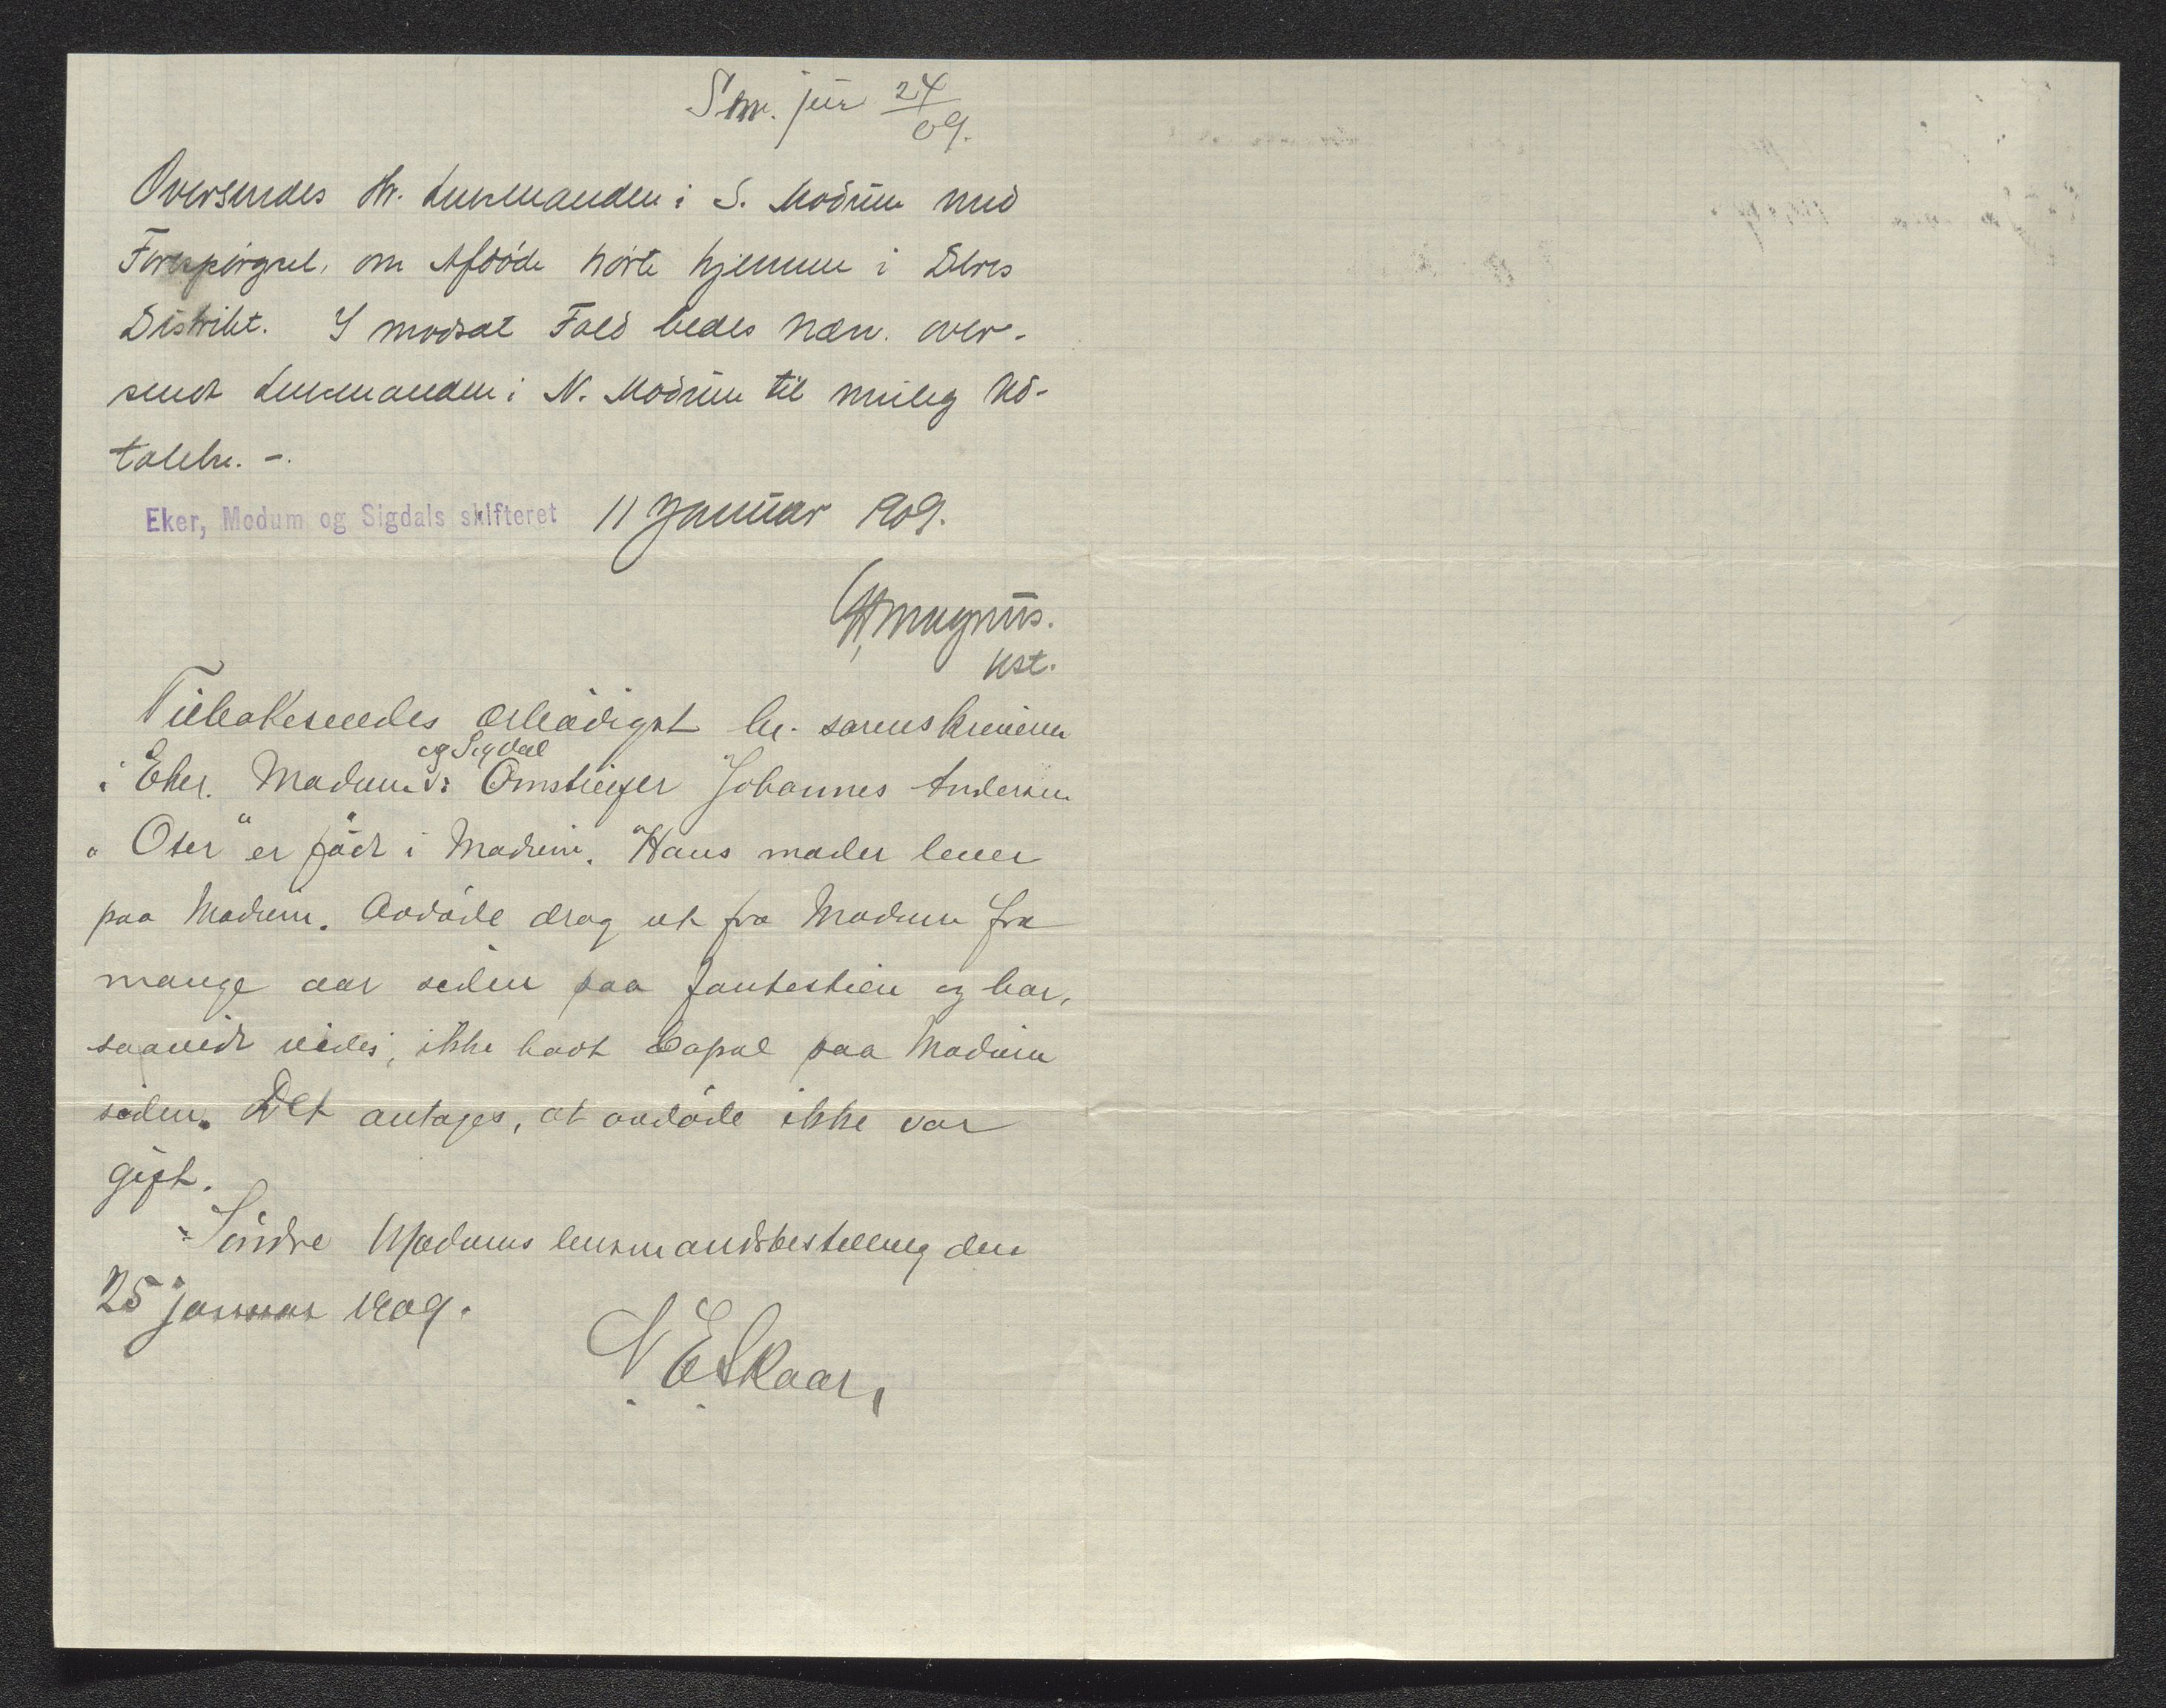 24/09.
Oversendes Hr. Lensmanden i S. Modum med
Forespørgsel, om Afdøde hørte hjemme i Deres
Distrikt. I modsat Fald bedes nærv. over-
sendt Lensmanden i N. Modum til mulig Ud-
talelse. -.
Eker, Modum og Sigdals skifteret 11 Januar 1909.
Magnus.
kst.
Tilbakesendes ærbødigst hr. sorenskriveren
i Eker. Modum og Sigdal: Omstreifer Johannes Andersen
"Oser" er født i Modum. Hans moder lever
paa Modum. Avdøde drog ut fra Modum fra
mange aar siden paa fantestien og har,
saavidt vides, ikke havt bopæl paa Modum
siden. Det antages, at avdøde ikke var
gift.
Søndre Modums lensmandsbestilling den
25 januar 1909.
N. E. Skaar,